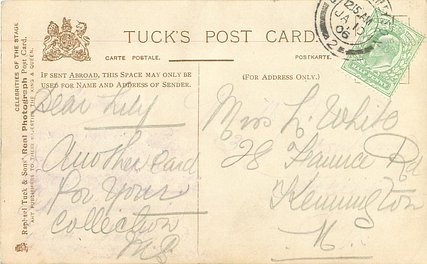 TUCK'S POST CARD.
CARTE POSTALE.
POSTKARTE.
IF SENT ABROAD, THIS SPACE MAY ONLY BE
USED FOR NAME AND ADDRESS OF SENDER.
(FOR ADDRESS ONLY.)
CELEBRITIES OF THE STAGE
Raphael Tuck & Sons' Real Photograph Post Card.
12.15 AM
JA 10
06
2
Dear Lily
Another Card
for Your
Collection
Miss L. White
28 Rd
Kennington